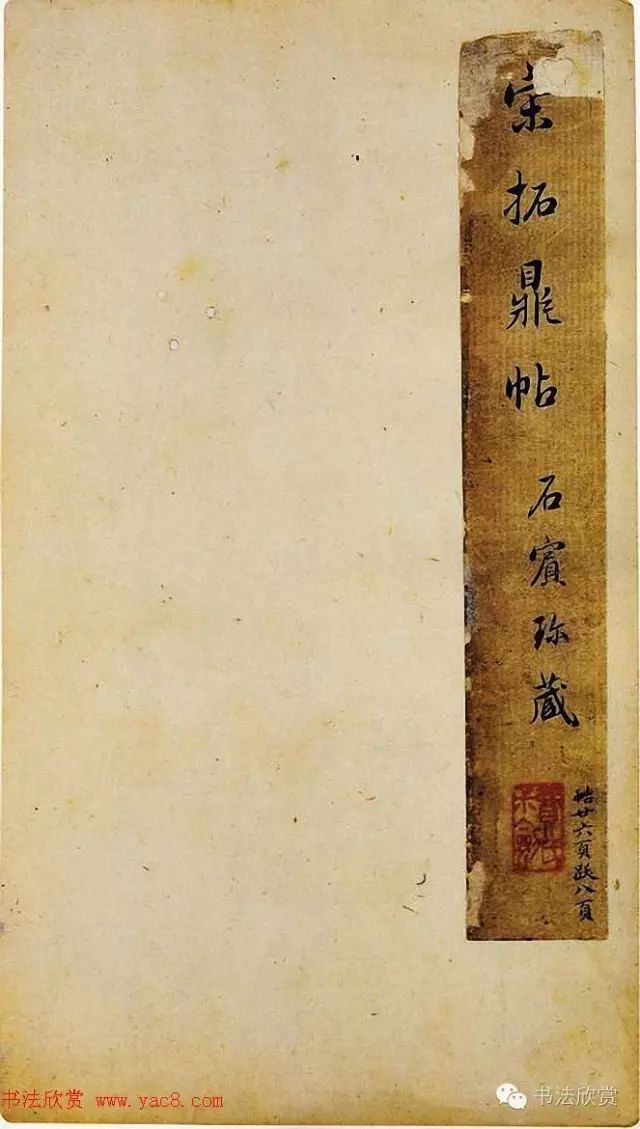 宋拓鼎帖
石賓珎藏
帖廿六頁跋八頁
书法欣赏 www.yac8.com
书法欣赏